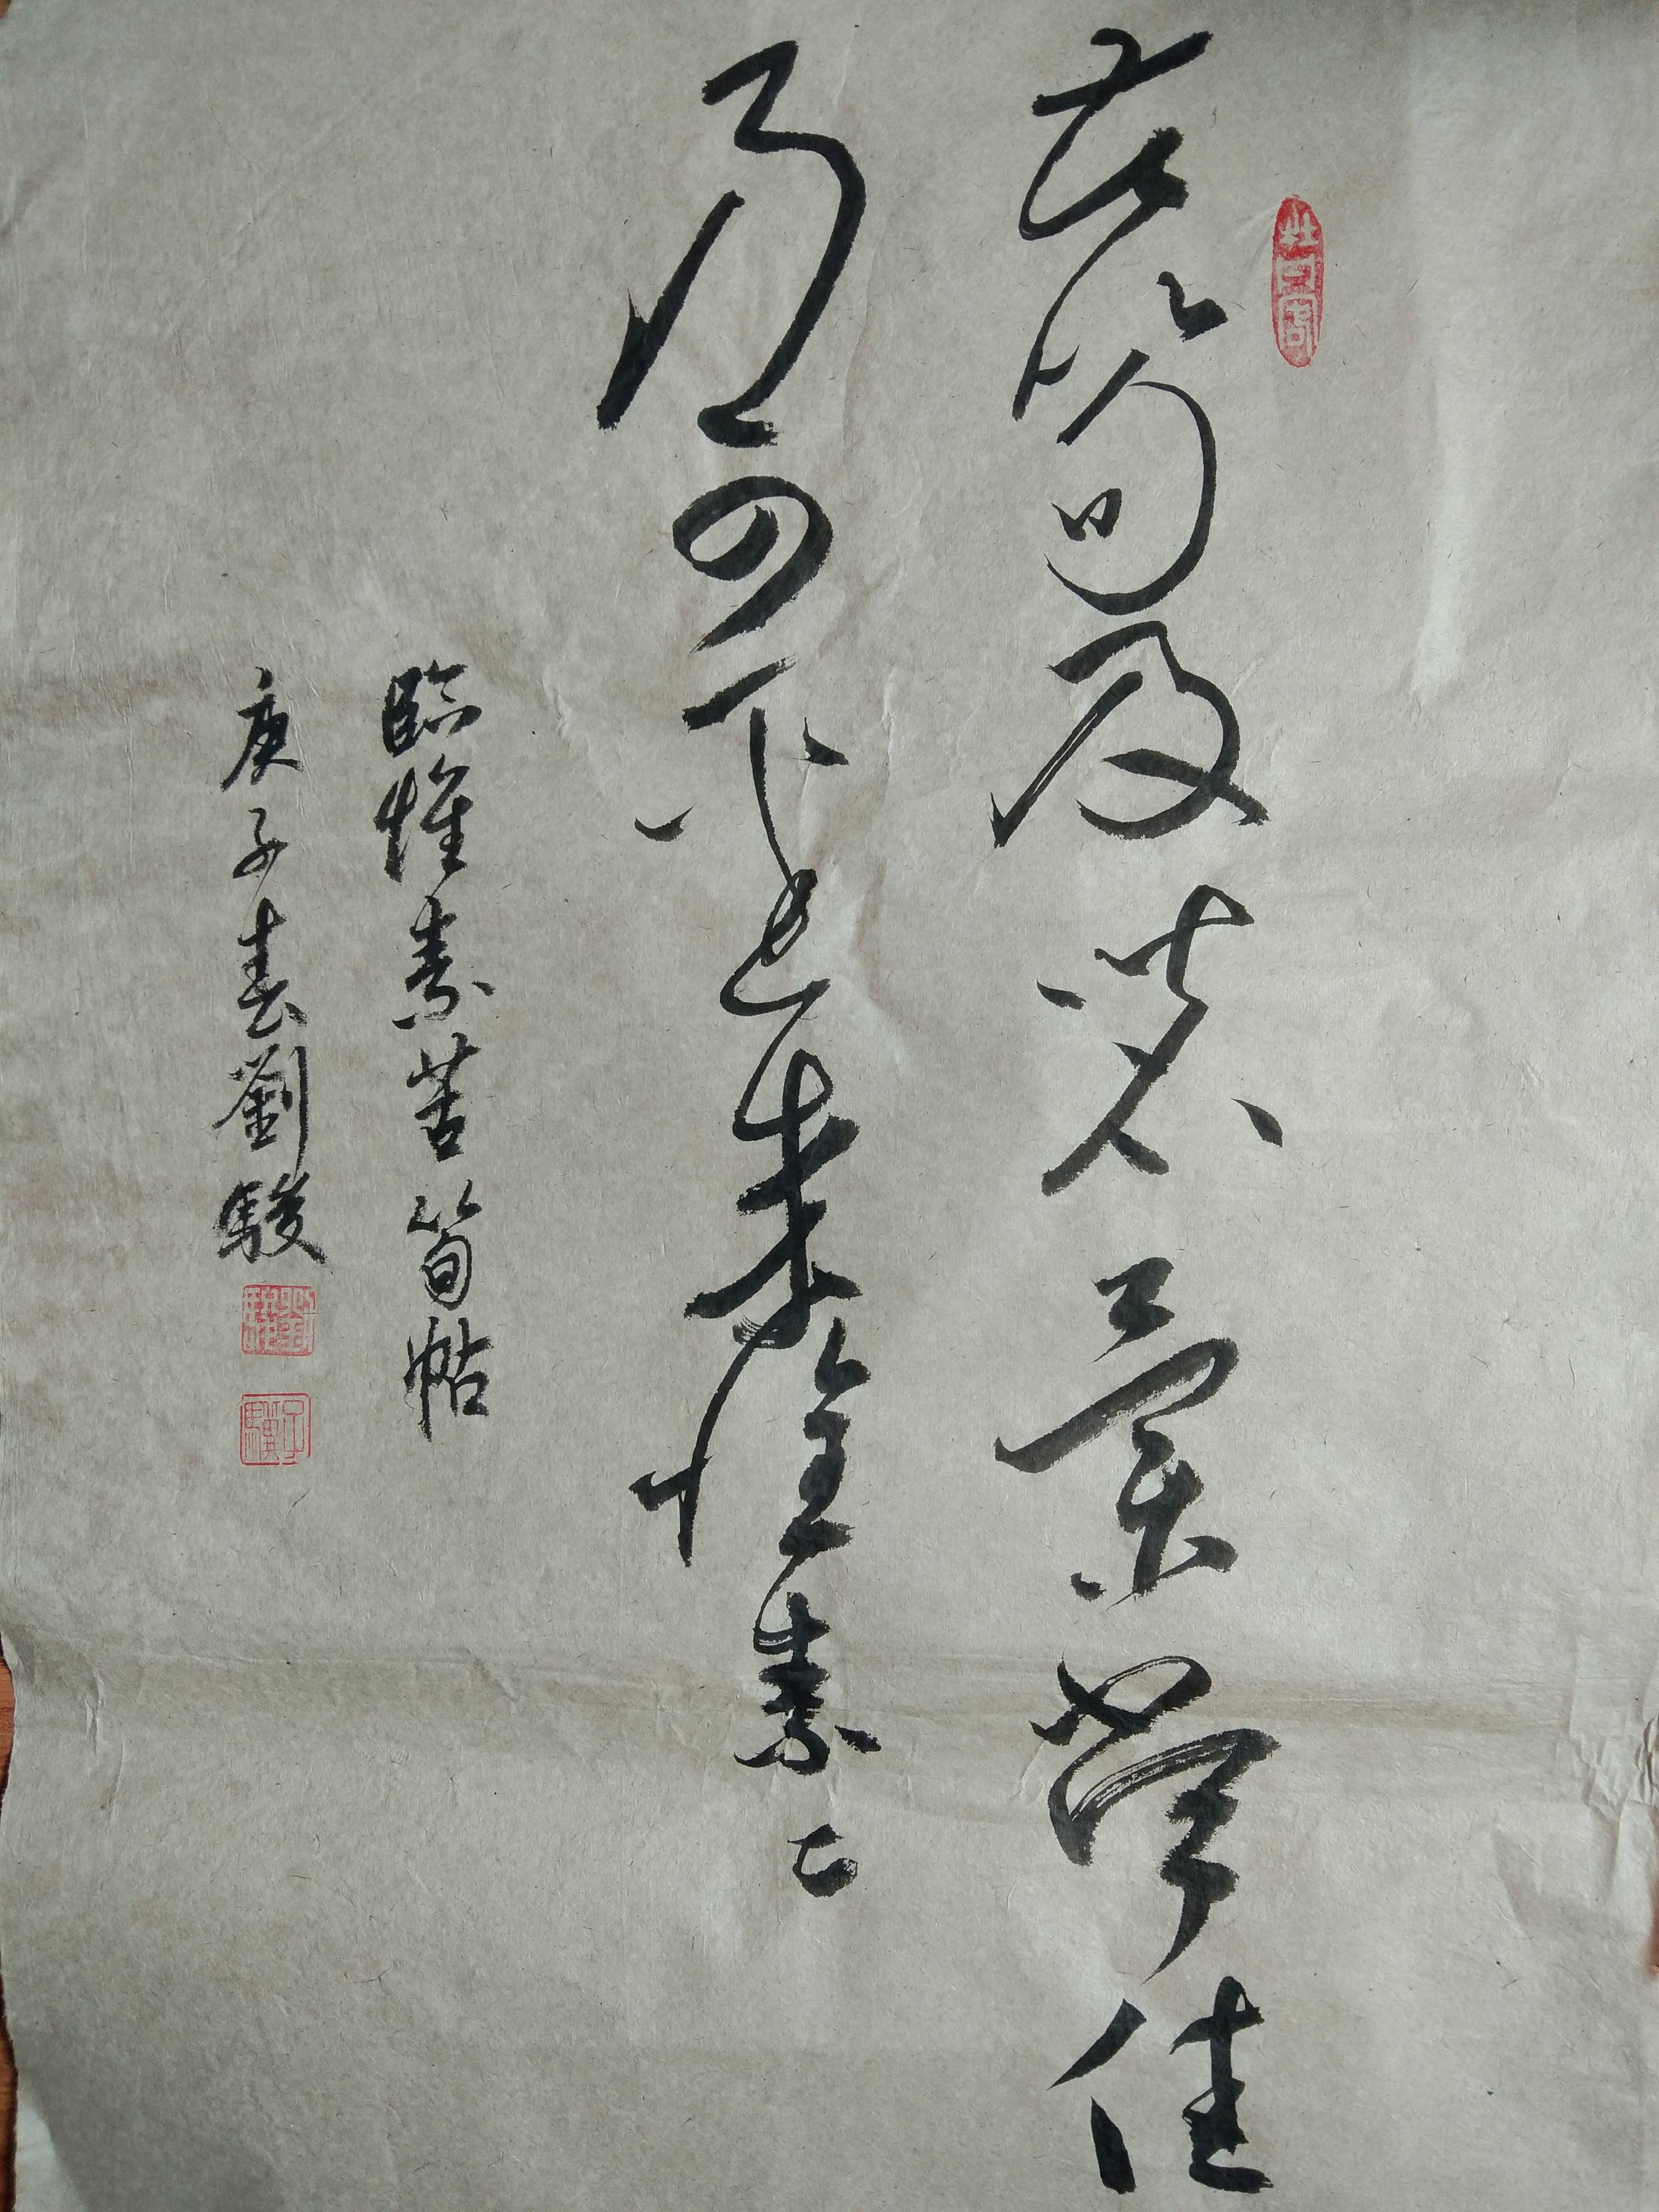 苦筍及茗異常佳
乃可逕來懷素上
臨懷素苦筍帖
庚子春劉駿